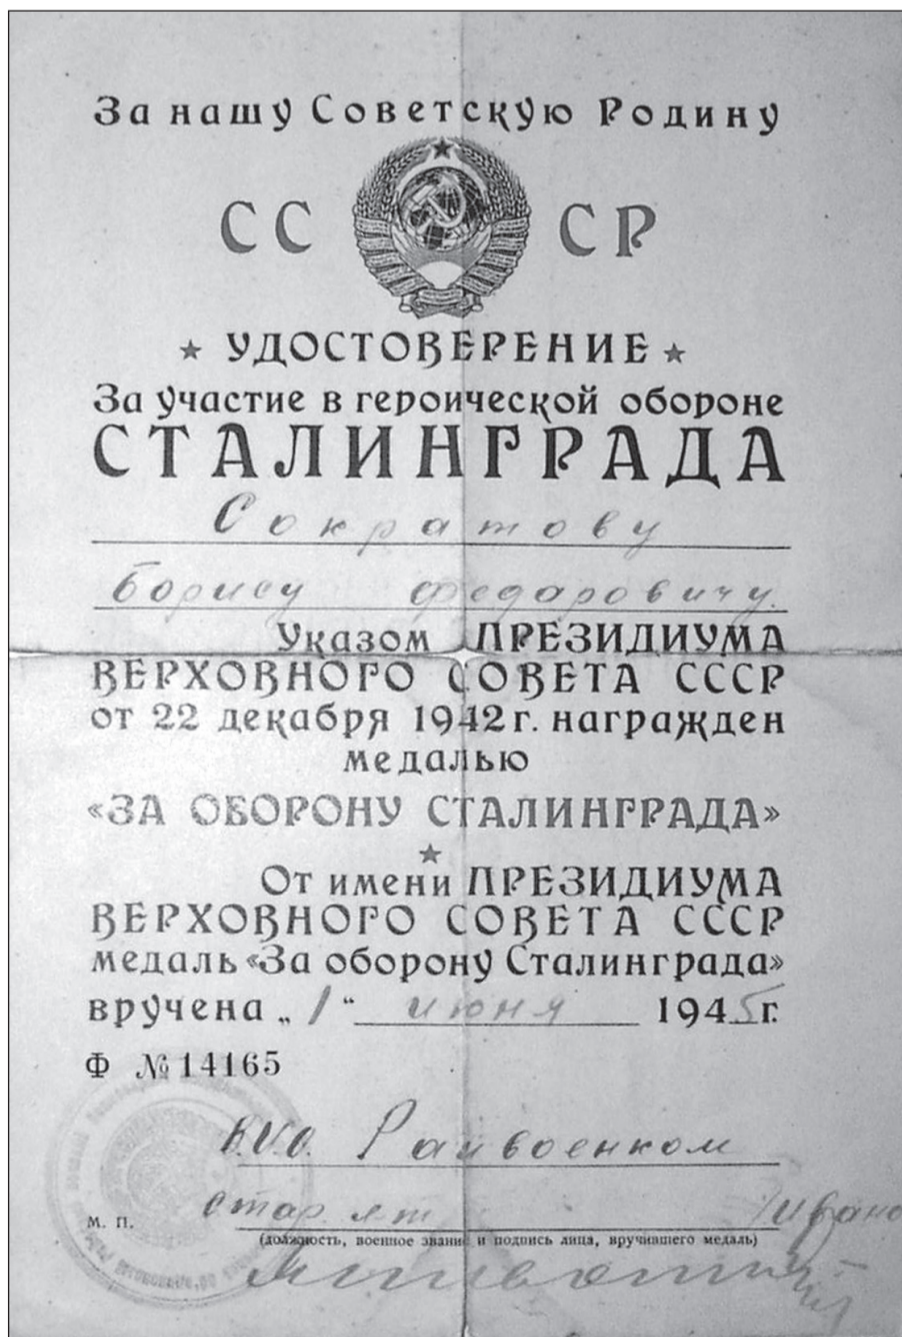 За нашу Советскую Родину
СС СР
УДОСТОВЕРЕНИЕ
За участие в героической обороне
СТАЛИНГРАДА
Сократову
Борису Федаровичу
Указом ПРЕЗИДИУМА
ВЕРХОВНОГО СОВЕТА СССР
от 22 декабря 1942 г. награжден
медалью
«ЗА ОБОРОНУ СТАЛИНГРАДА»
От имени ПРЕЗИДИУМА
ВЕРХОВНОГО СОВЕТА СССР
медаль «За оборону Сталинграда»
вручена „1“ июня 1945 г.
Ф № 14165
Райвоенком
стар. лт
М. П.
(должность, военное звание и подпись лица, вручившего медаль)